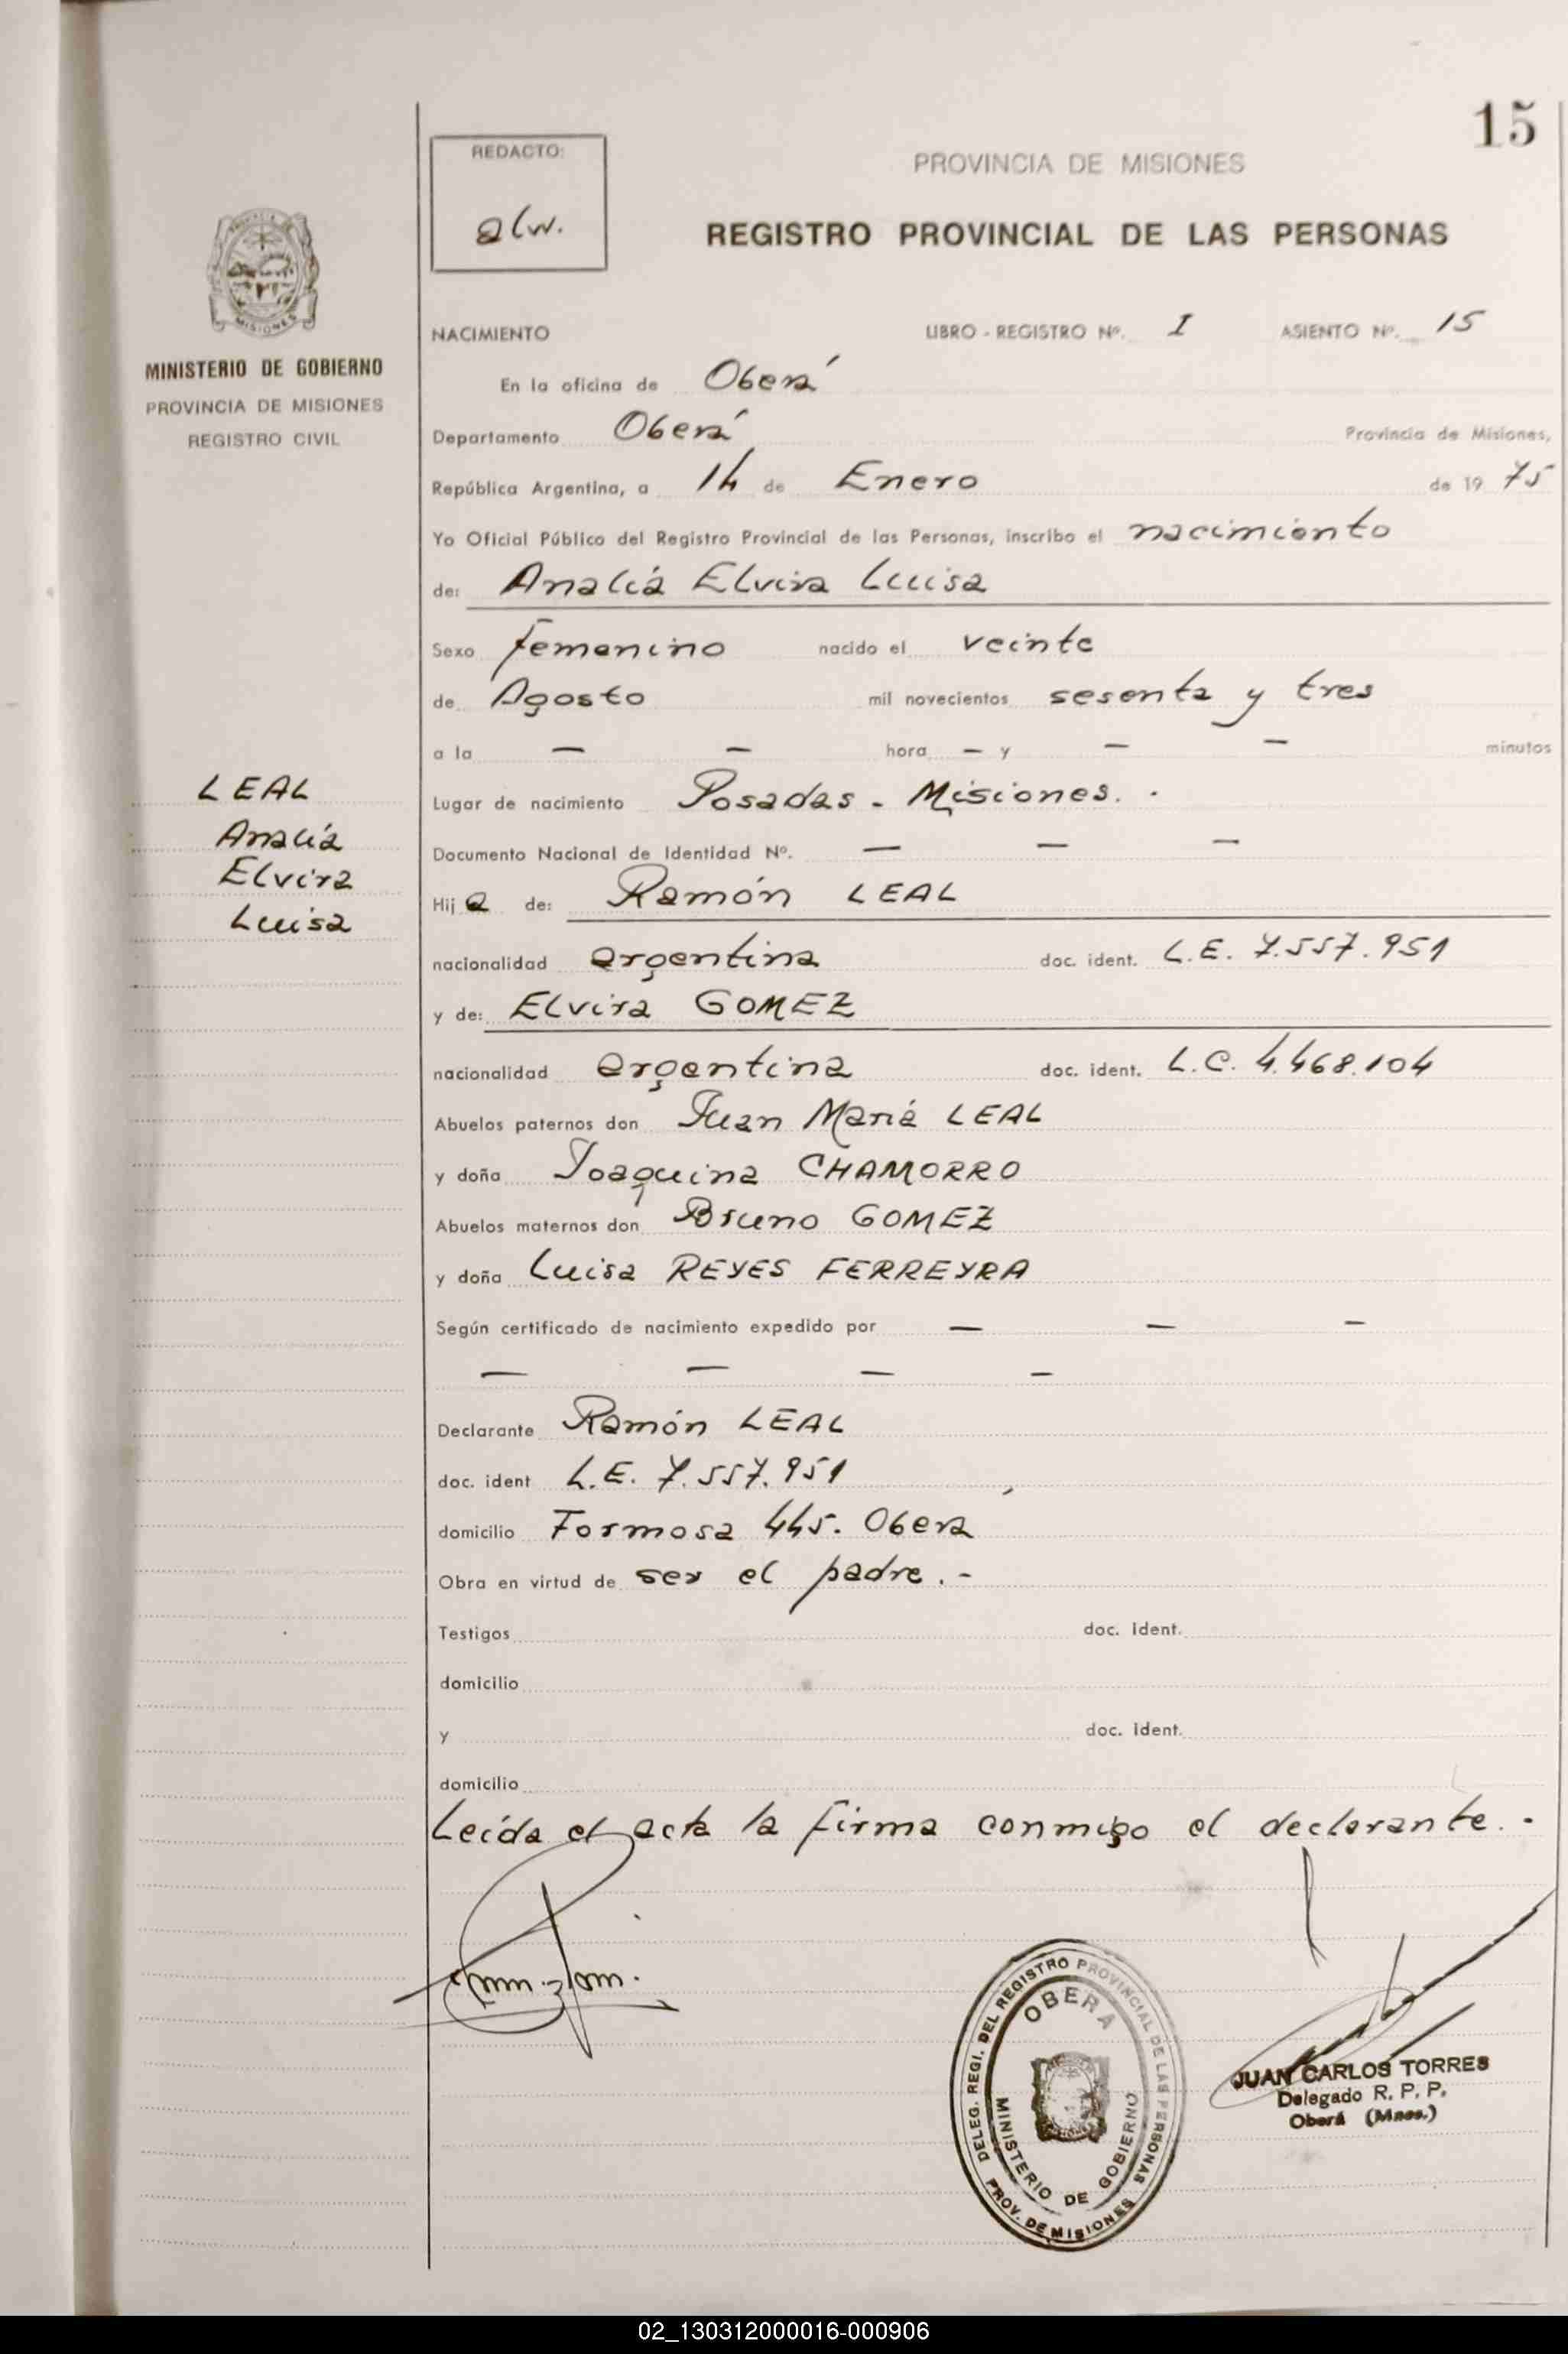 15
REDACTO:
alw.
PROVINCIA DE MISIONES
REGISTRO PROVINCIAL DE LAS PERSONAS
PROVINCIA DE
MISIONES
MINISTERIO DE GOBIERNO
PROVINCIA DE MISIONES
REGISTRO CIVIL
NACIMIENTO LIBRO - REGISTRO Nº. I ASIENTO Nº. 15
En la oficina de Oberá
Departamento Oberá Provincia de Misiones,
República Argentina, a 14 de Enero de 19 75
Yo Oficial Público del Registro Provincial de las Personas, inscribo el nacimiento
de: Analía Elvira Luisa
Sexo femenino nacido el veinte
de Agosto mil novecientos sesenta y tres
a la — — hora — y — — minutos
Lugar de nacimiento Posadas - Misiones. -
Documento Nacional de Identidad Nº. — — —
LEAL
Analía
Elvira
Luisa
Hij a de: Ramón LEAL
nacionalidad argentina doc. ident. L.E. 7.557.951
y de: Elvira GOMEZ
nacionalidad argentina doc. ident. L.C. 4.468.104
Abuelos paternos don Juan María LEAL
y doña Joaquina CHAMORRO
Abuelos maternos don Bruno GOMEZ
y doña Luisa REYES FERREYRA
Según certificado de nacimiento expedido por — — —
— — — —
Declarante Ramón LEAL
doc. ident L.E. 7.557.951
domicilio Formosa 445. Oberá
Obra en virtud de ser el padre. -
Testigos doc. ident.
domicilio
y doc. ident.
domicilio
Leída el acta la firma conmigo el declarante. -
DELEG. REGI. DEL REGISTRO PROVINCIAL DE LAS PERSONAS
OBERA
MINISTERIO DE GOBIERNO
PROV. DE MISIONES
JUAN CARLOS TORRES
Delegado R. P. P.
Oberá (Mnes.)
02_130312000016-000906